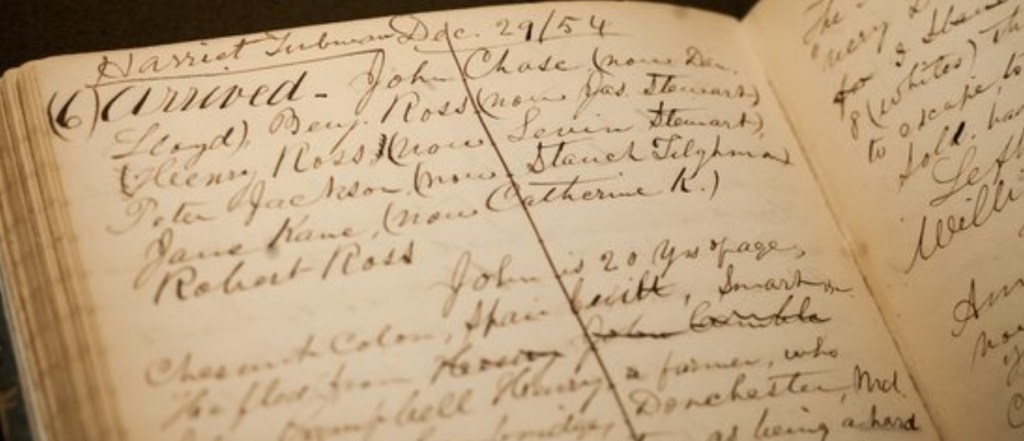 Harriet Tubman Dec. 29/54
(6) Arrived - John Chase (now Dan.
Lloyd), Benj. Ross (now Jas. Stewart)
(Henry Ross) (now Levin Stewart),
Peter Jackson (now Stanch Tilghman)
Jane Kane, (now Catherine K.)
Robert Ross
John is 20 Yrs of age,
Chesnut Color, Spair built, Smart
He fled from
Campbell Henry, a farmer, who
Dorchester, Md.
as being a hard
The
for
8 (whites) Th
to escape, to
sold. har
Left
Willi